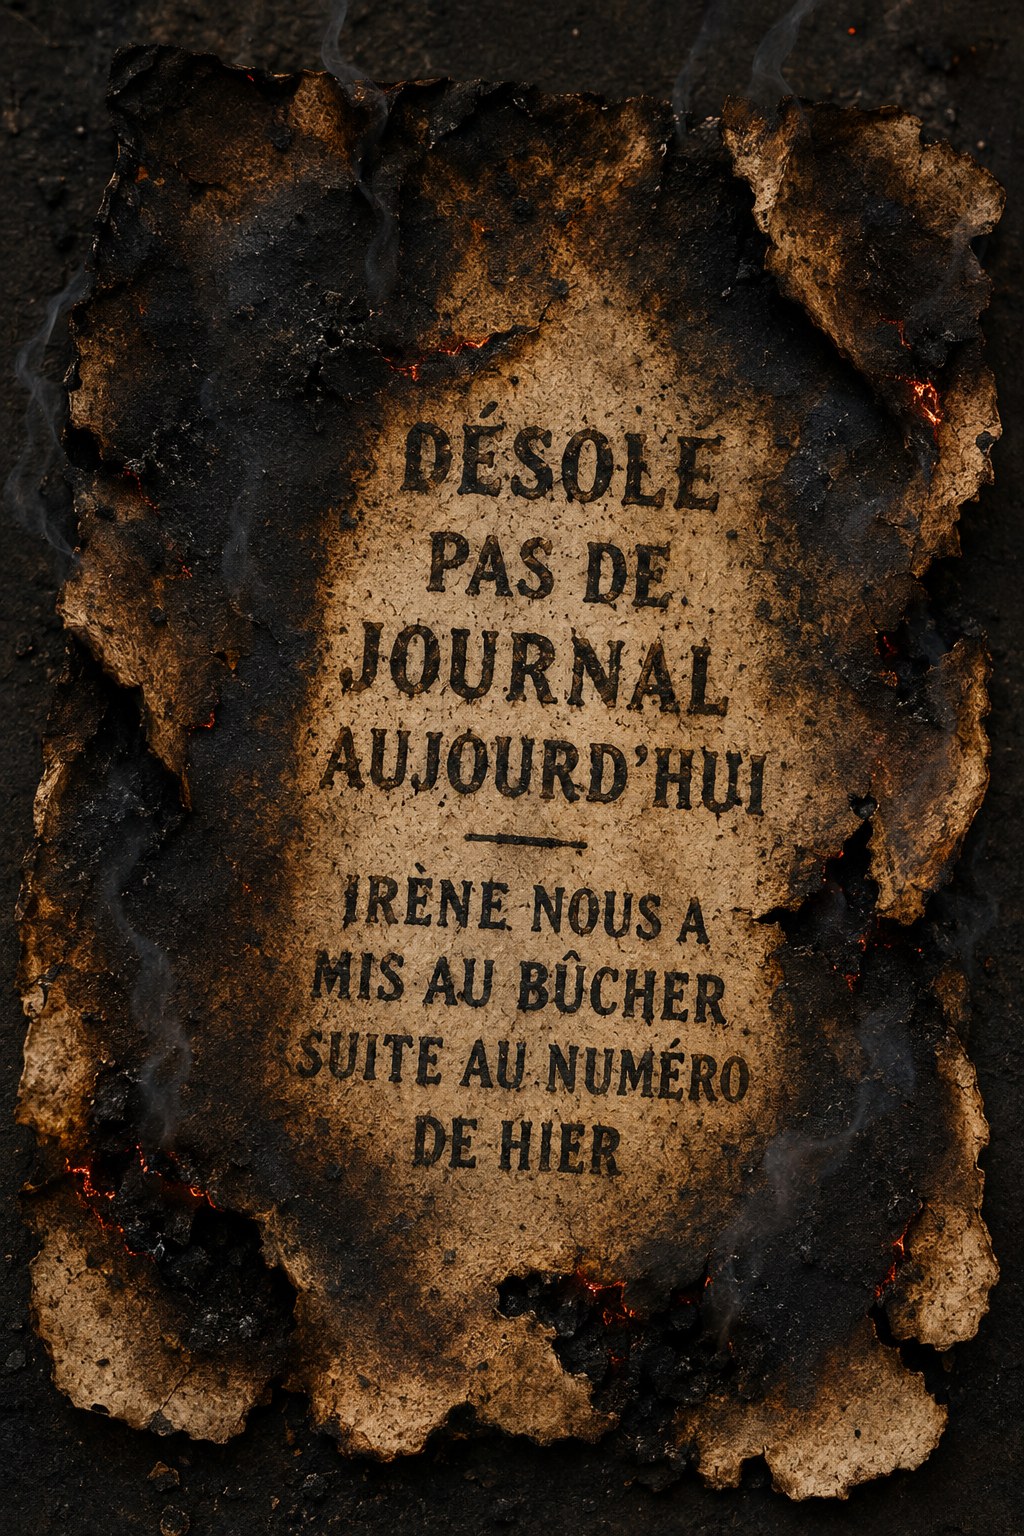 DÉSOLÉ
PAS DE
JOURNAL
AUJOURD'HUI
IRÈNE NOUS A
MIS AU BÛCHER
SUITE AU NUMÉRO
DE HIER